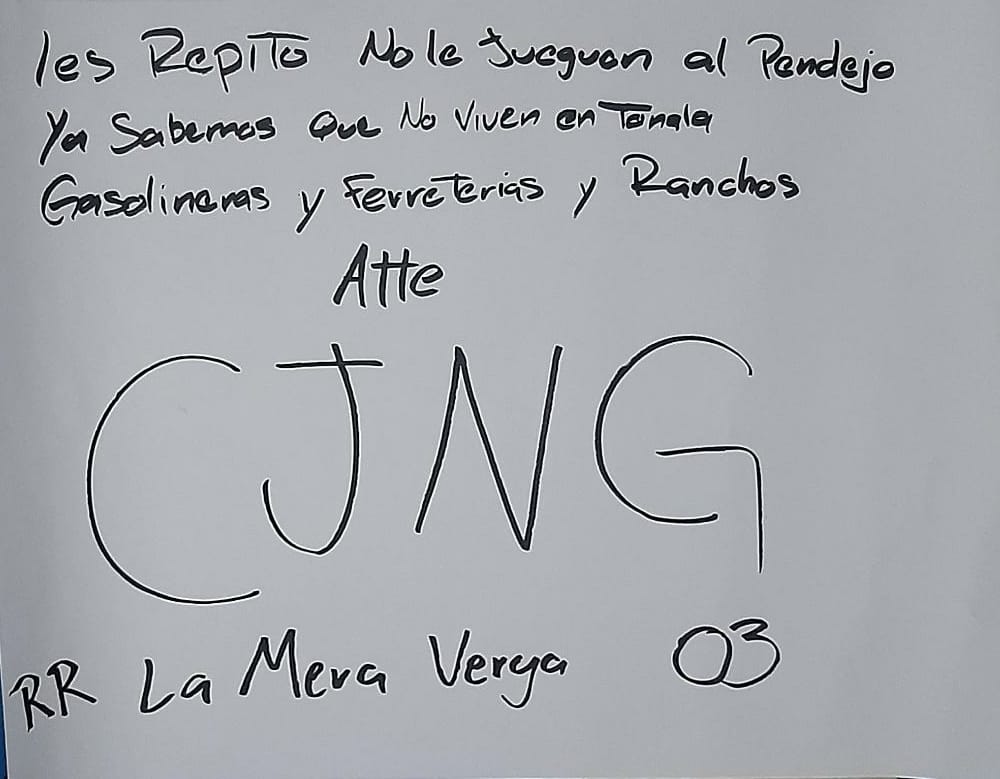 les Repito No le Jueguen al Pendejo
Ya Sabemos Que No Viven en Tonala
Gasolineras y Ferreterias y Ranchos
Atte
CJNG
RR La Mera Verga 03